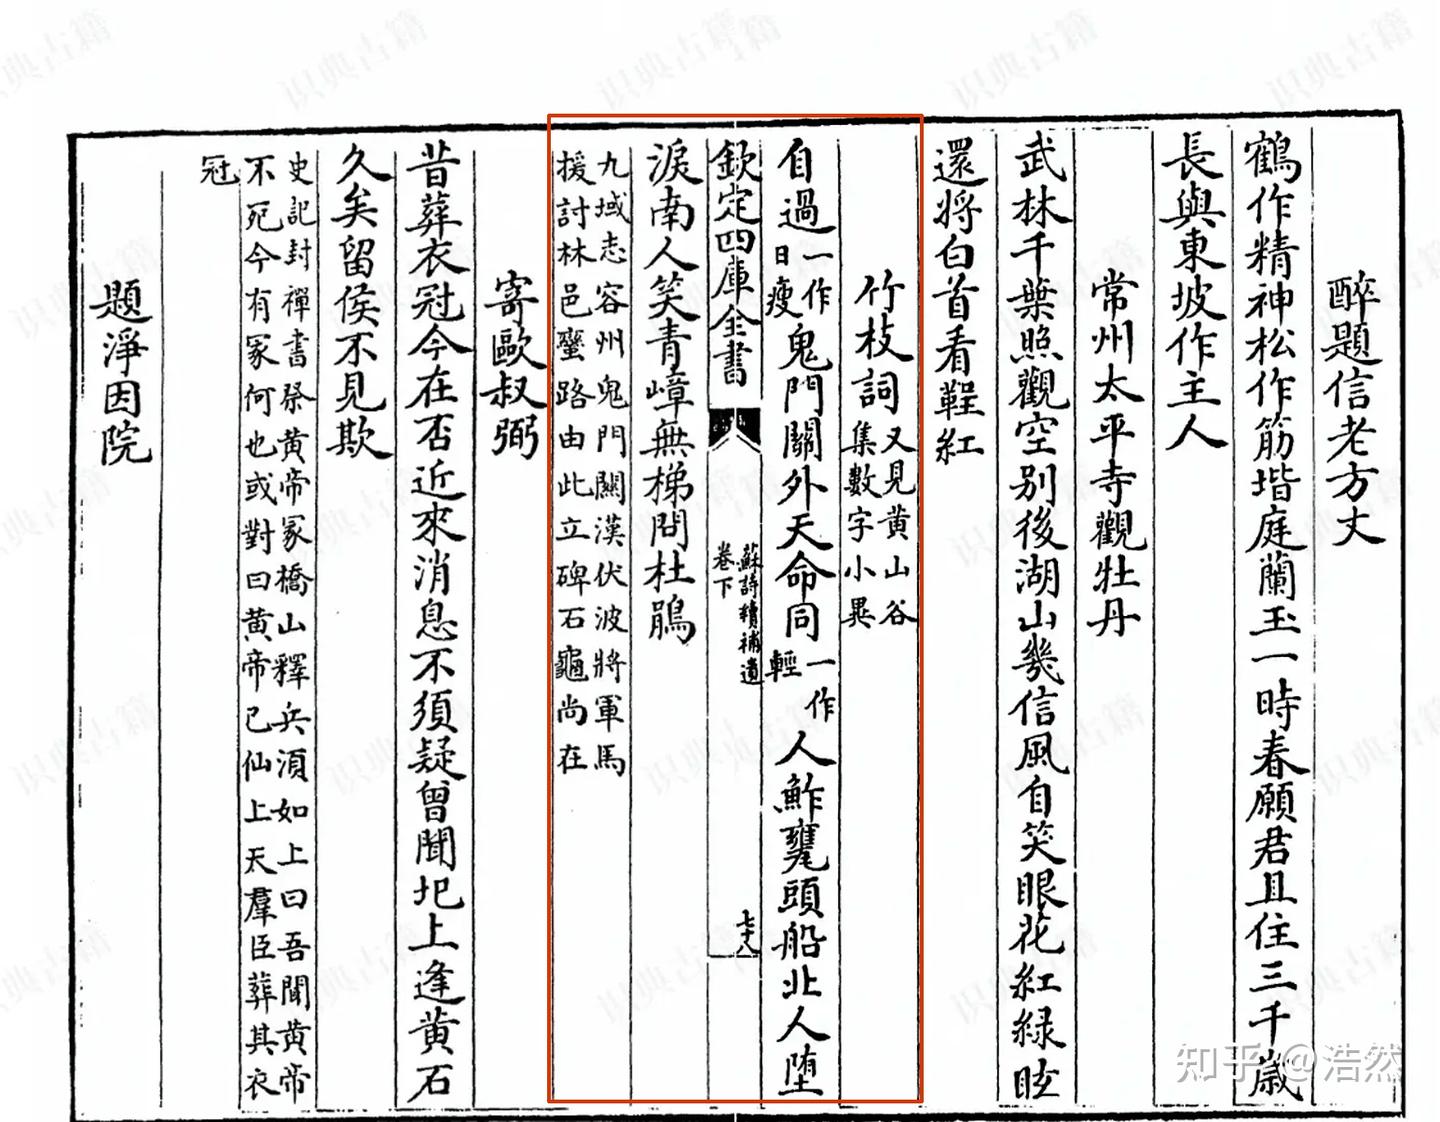 醉題信老方丈
鶴作精神松作筋堦庭蘭玉一時春願君且住三千歲
長與東坡作主人
常州太平寺觀牡丹
武林千葉照觀空別後湖山幾信風自笑眼花紅綠眩
還將白首看鞓紅
竹枝詞又見黄山谷
集數字小異
自過一作
日瘦鬼門關外天命同一作
輕人鮓甕頭船北人墮
欽定四庫全書
蘇詩續補遺
卷下
七十八
淚南人笑青嶂無梯問杜鵑
九域志容州鬼門關漢伏波將軍馬
援討林邑蠻路由此立碑石龜尚在
寄歐叔弼
昔葬衣冠今在否近來消息不須疑曾聞圯上逢黄石
久矣留侯不見欺
史記封禪書祭黄帝冢橋山釋兵湏如上曰吾聞黄帝
不死今有冢何也或對曰黄帝已仙上天羣臣葬其衣
冠
題淨因院
知乎 @浩然
识典古籍